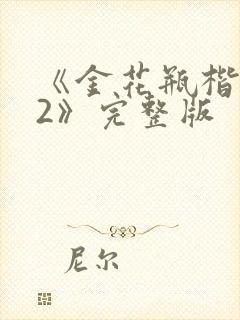 《金花瓶楷
2》完整版
尼尔